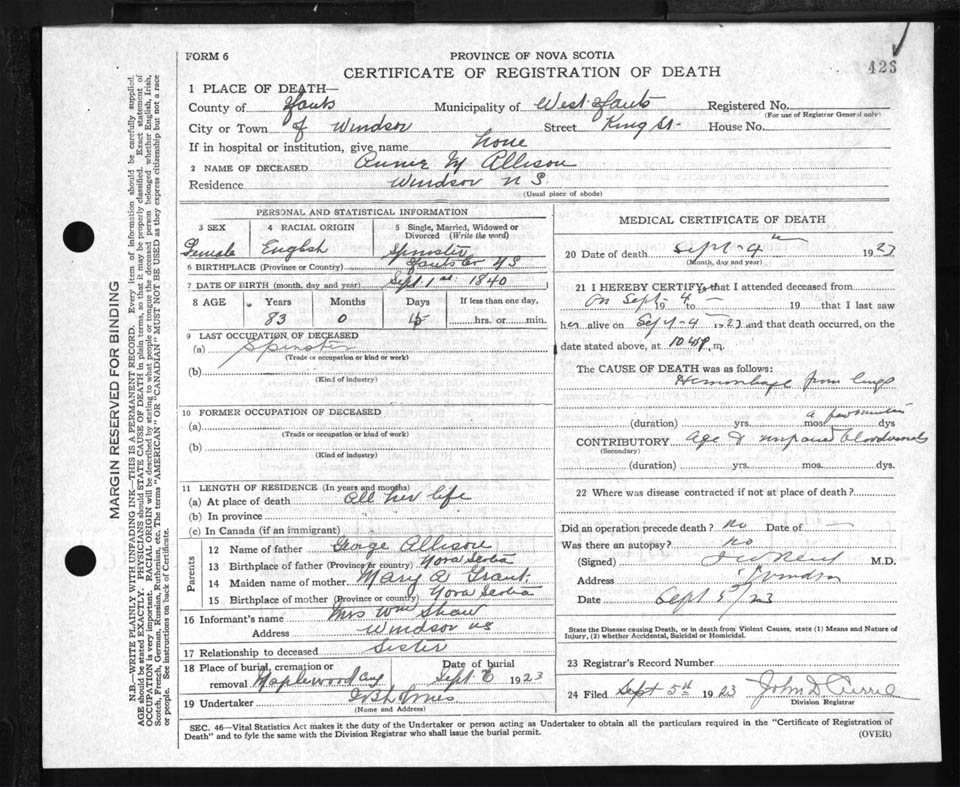 FORM 6
PROVINCE OF NOVA SCOTIA
CERTIFICATE OF REGISTRATION OF DEATH
423
1 PLACE OF DEATH—
County of Hants Municipality of West Hants Registered No.
(For use of Registrar General only)
City or Town of Windsor Street King St- House No.
If in hospital or institution, give name None
2 NAME OF DECEASED Annie M Allison
Residence Windsor N S.
(Usual place of abode)
PERSONAL AND STATISTICAL INFORMATION
3 SEX 4 RACIAL ORIGIN 5 Single, Married, Widowed or Divorced (Write the word)
Female English Spinster
6 BIRTHPLACE (Province or Country) Hants Co NS
7 DATE OF BIRTH (month, day and year) Sept. 1st 1840
8 AGE Years Months Days If less than one day,
83 0 hrs. or min.
9 LAST OCCUPATION OF DECEASED
(a) Spinster
(Trade or occupation or kind of work)
(b)
(Kind of industry)
10 FORMER OCCUPATION OF DECEASED
(a)
(Trade or occupation or kind of work)
(b)
(Kind of industry)
11 LENGTH OF RESIDENCE (In years and months)
(a) At place of death All her life
(b) In province
(c) In Canada (if an immigrant)
Parents
12 Name of father George Allison
13 Birthplace of father (Province or country) Nova Scotia
14 Maiden name of mother Mary A Grant
15 Birthplace of mother (Province or country) Nova Scotia
16 Informant's name Mrs Wm Shaw
Address Windsor NS
17 Relationship to deceased Sister
18 Place of burial, cremation or removal Maplewood Cey Date of burial Sept 6 1923
19 Undertaker
(Name and Address)
MEDICAL CERTIFICATE OF DEATH
20 Date of death Sept-4th 1923
(Month, day and year)
21 I HEREBY CERTIFY, that I attended deceased from
on Sept 4 19 — 19 that I last saw
her alive on Sept-4 1923 and that death occurred, on the
date stated above, at 10 45 P. m.
The CAUSE OF DEATH was as follows:
Hemorrhage from lungs
a few minutes
(duration) yrs. mos. dys
CONTRIBUTORY Age & impaired bloodvessels
(Secondary)
(duration) yrs. mos. dys.
22 Where was disease contracted if not at place of death?
Did an operation precede death? no Date of —
Was there an autopsy? no
(Signed) M.D.
Address Windsor
Date Sept 5/23
State the Disease causing Death, or in death from Violent Causes, state (1) Means and Nature of
Injury, (2) whether Accidental, Suicidal or Homicidal.
23 Registrar's Record Number
24 Filed Sept 5th 1923 John D Currie
Division Registrar
SEC. 46—Vital Statistics Act makes it the duty of the Undertaker or person acting as Undertaker to obtain all the particulars required in the "Certificate of Registration of
Death" and to fyle the same with the Division Registrar who shall issue the burial permit.
(OVER)
MARGIN RESERVED FOR BINDING
N.B.—WRITE PLAINLY WITH UNFADING INK—THIS IS A PERMANENT RECORD. Every item of information should be carefully supplied.
AGE should be stated EXACTLY. PHYSICIANS should STATE CAUSE OF DEATH in plain terms, so that it may be properly classified. Exact statement of
OCCUPATION is very important. RACIAL ORIGIN will be described by stating to what people or tongue the deceased person belonged whether English, Irish,
Scotch, French, German, Russian, Ruthenian, etc. The terms "AMERICAN" OR "CANADIAN" MUST NOT BE USED as they express citizenship but not a race
or people. See instructions on back of Certificate.